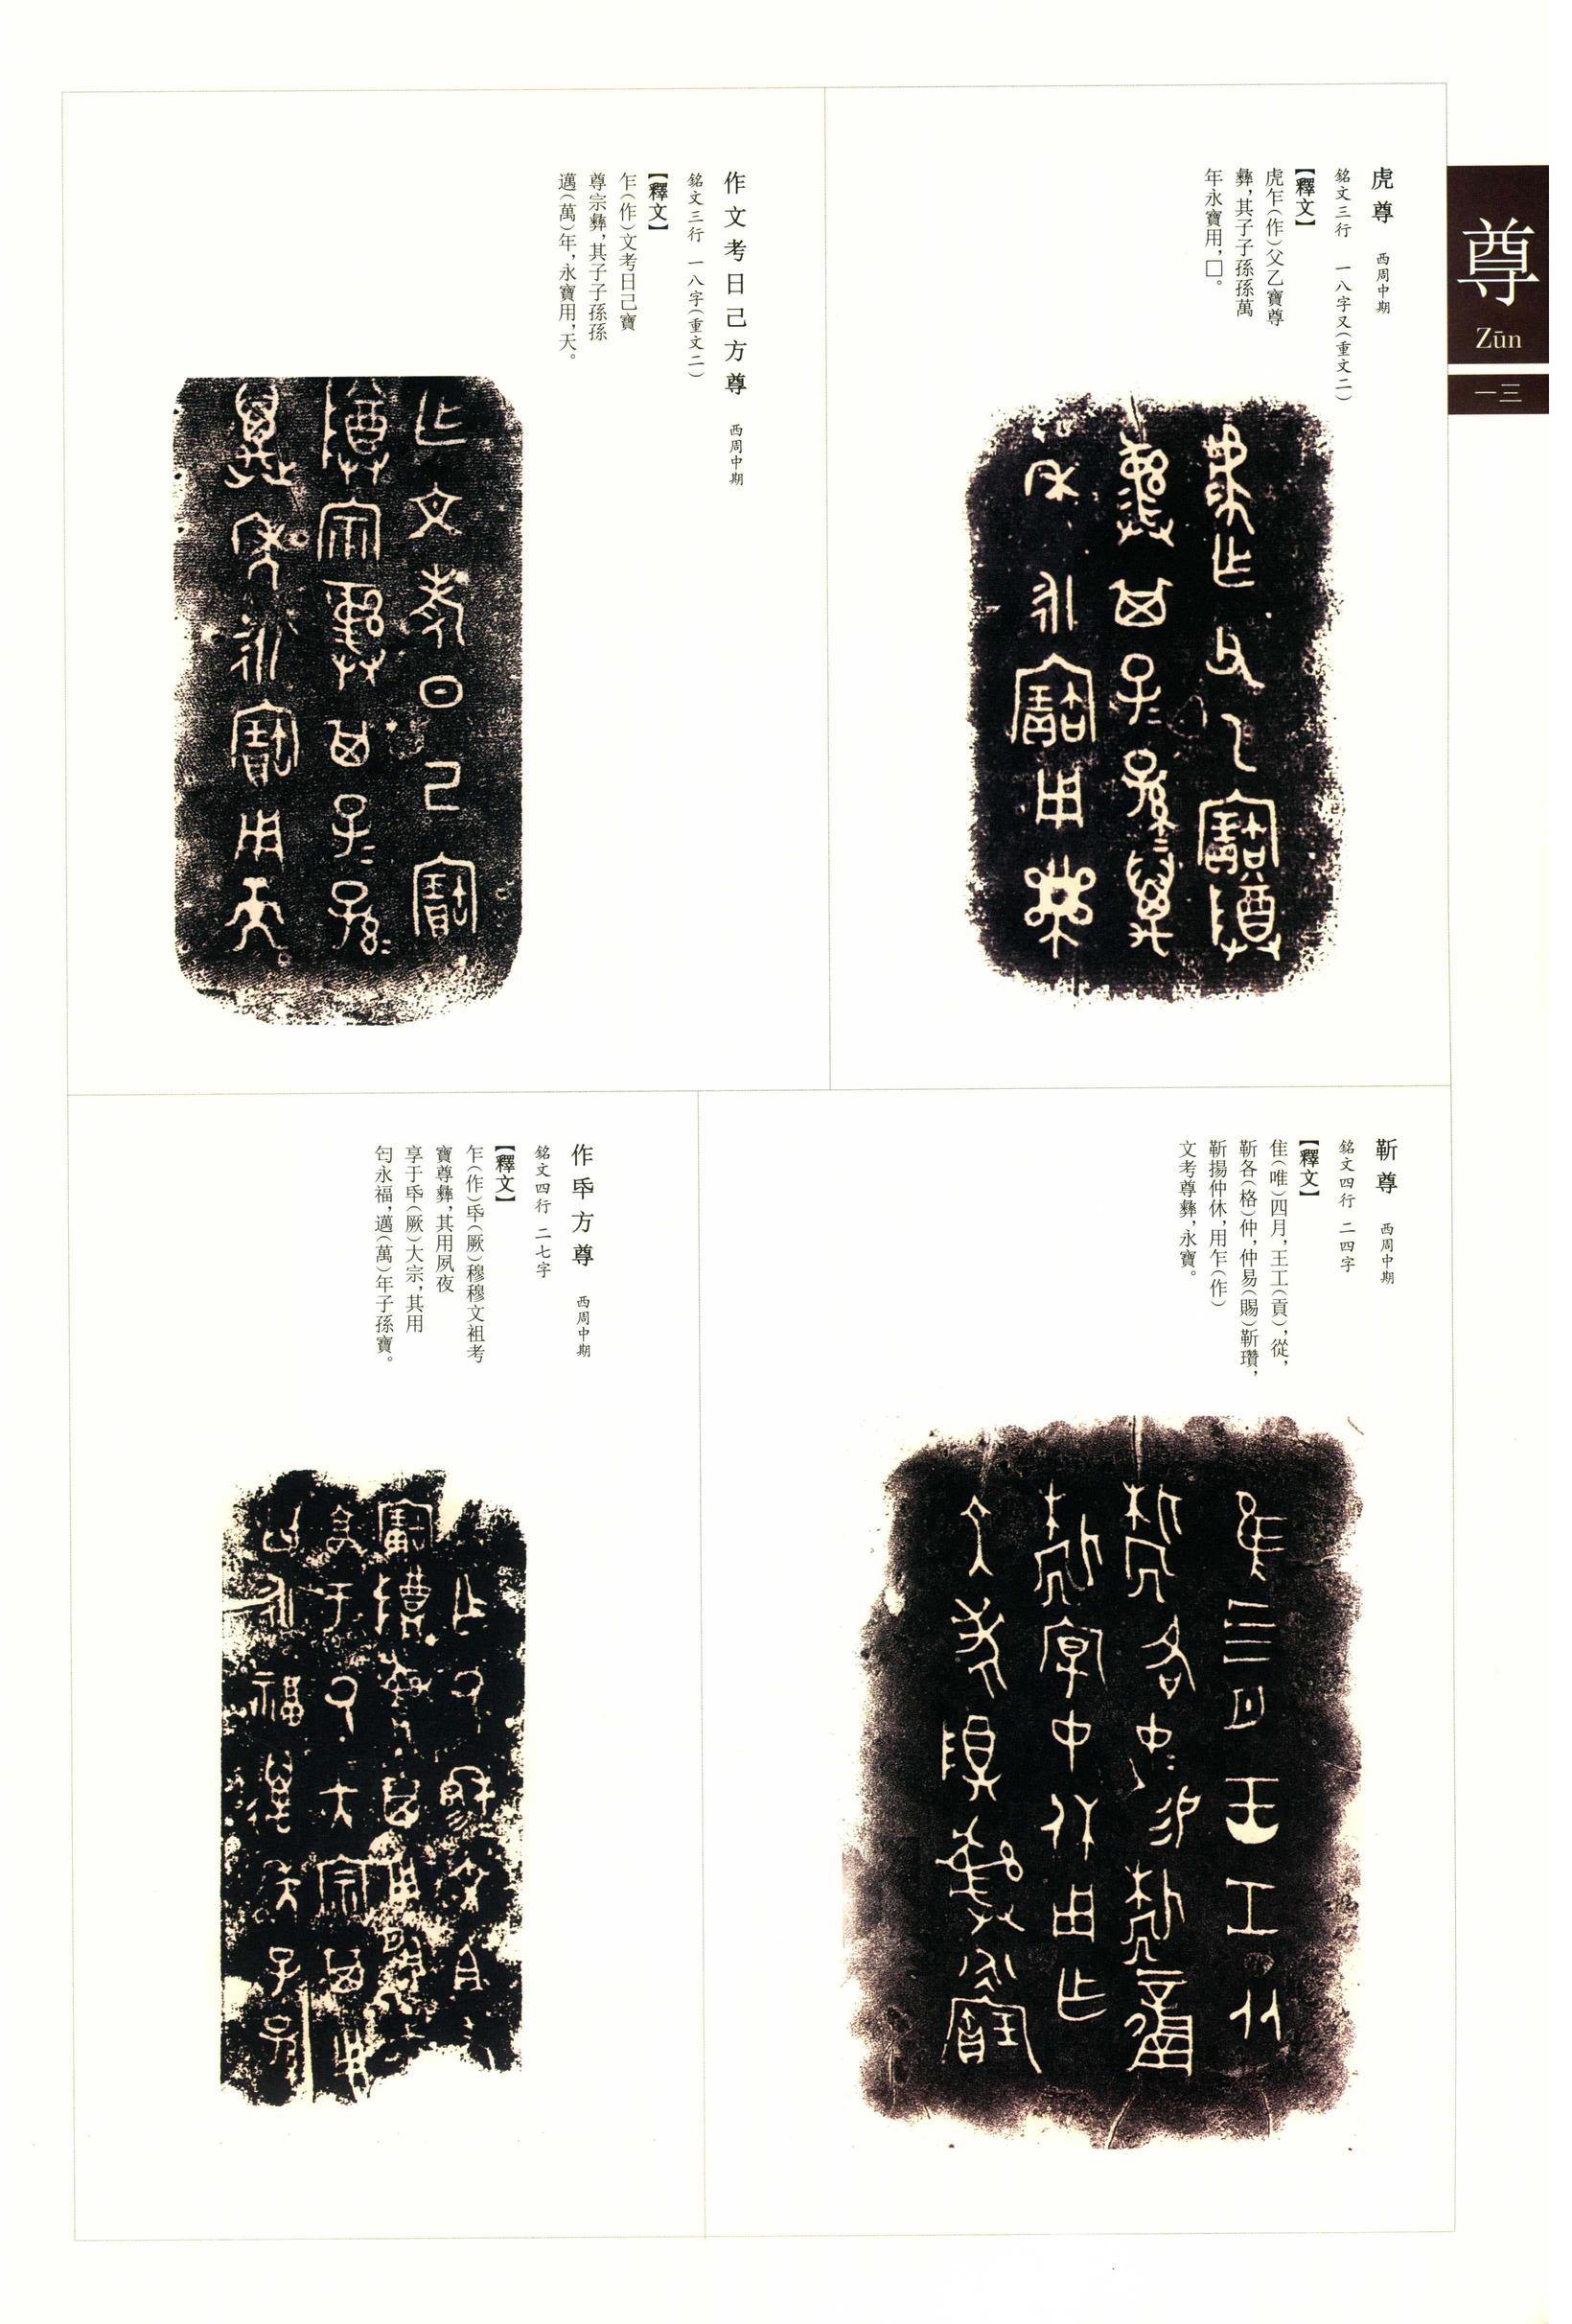 尊
Zūn
一三
虎尊 西周中期
銘文三行 一八字又(重文二)
【釋文】
虎乍(作)父乙寶尊
彝,其子子孫孫萬
年永寶用,□。
作文考日己方尊 西周中期
銘文三行 一八字(重文二)
【釋文】
乍(作)文考日己寶
尊宗彝,其子子孫孫
邁(萬)年,永寶用,天。
靳尊 西周中期
銘文四行 二四字
【釋文】
隹(唯)四月,王工(貢),從,
靳各(格)仲,仲易(賜)靳瓚,
靳揚仲休,用乍(作)
文考尊彝,永寶。
作氒方尊 西周中期
銘文四行 二七字
【釋文】
乍(作)氒(厥)穆穆文祖考
寶尊彝,其用夙夜
享于氒(厥)大宗,其用
匄永福,邁(萬)年子孫寶。